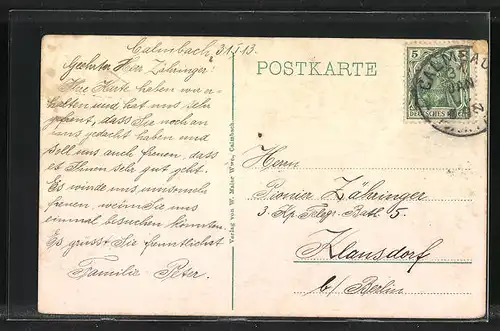 Calmbach, 31.I.13.
Geehrter Herr Zähringer!
Ihre Karte haben wir er-
halten und hat uns sehr
gefreut, dass Sie noch an
uns gedacht haben und
soll uns auch freuen, dass
es Ihnen sehr gut geht.
Es würde uns umsomehr
freuen, wenn Sie uns
einmal besuchen könnten.
Es grüsst Sie freundlichst
Familie Peter
Verlag von W. Maier Wwe., Calmbach.
POSTKARTE
5
DEUTSCHES REICH
CALMBACH
31
JAN
Herrn
Pionier Zähringer
3. Kp. Telegr. Batl. 5.
Klausdorf
b/ Berlin